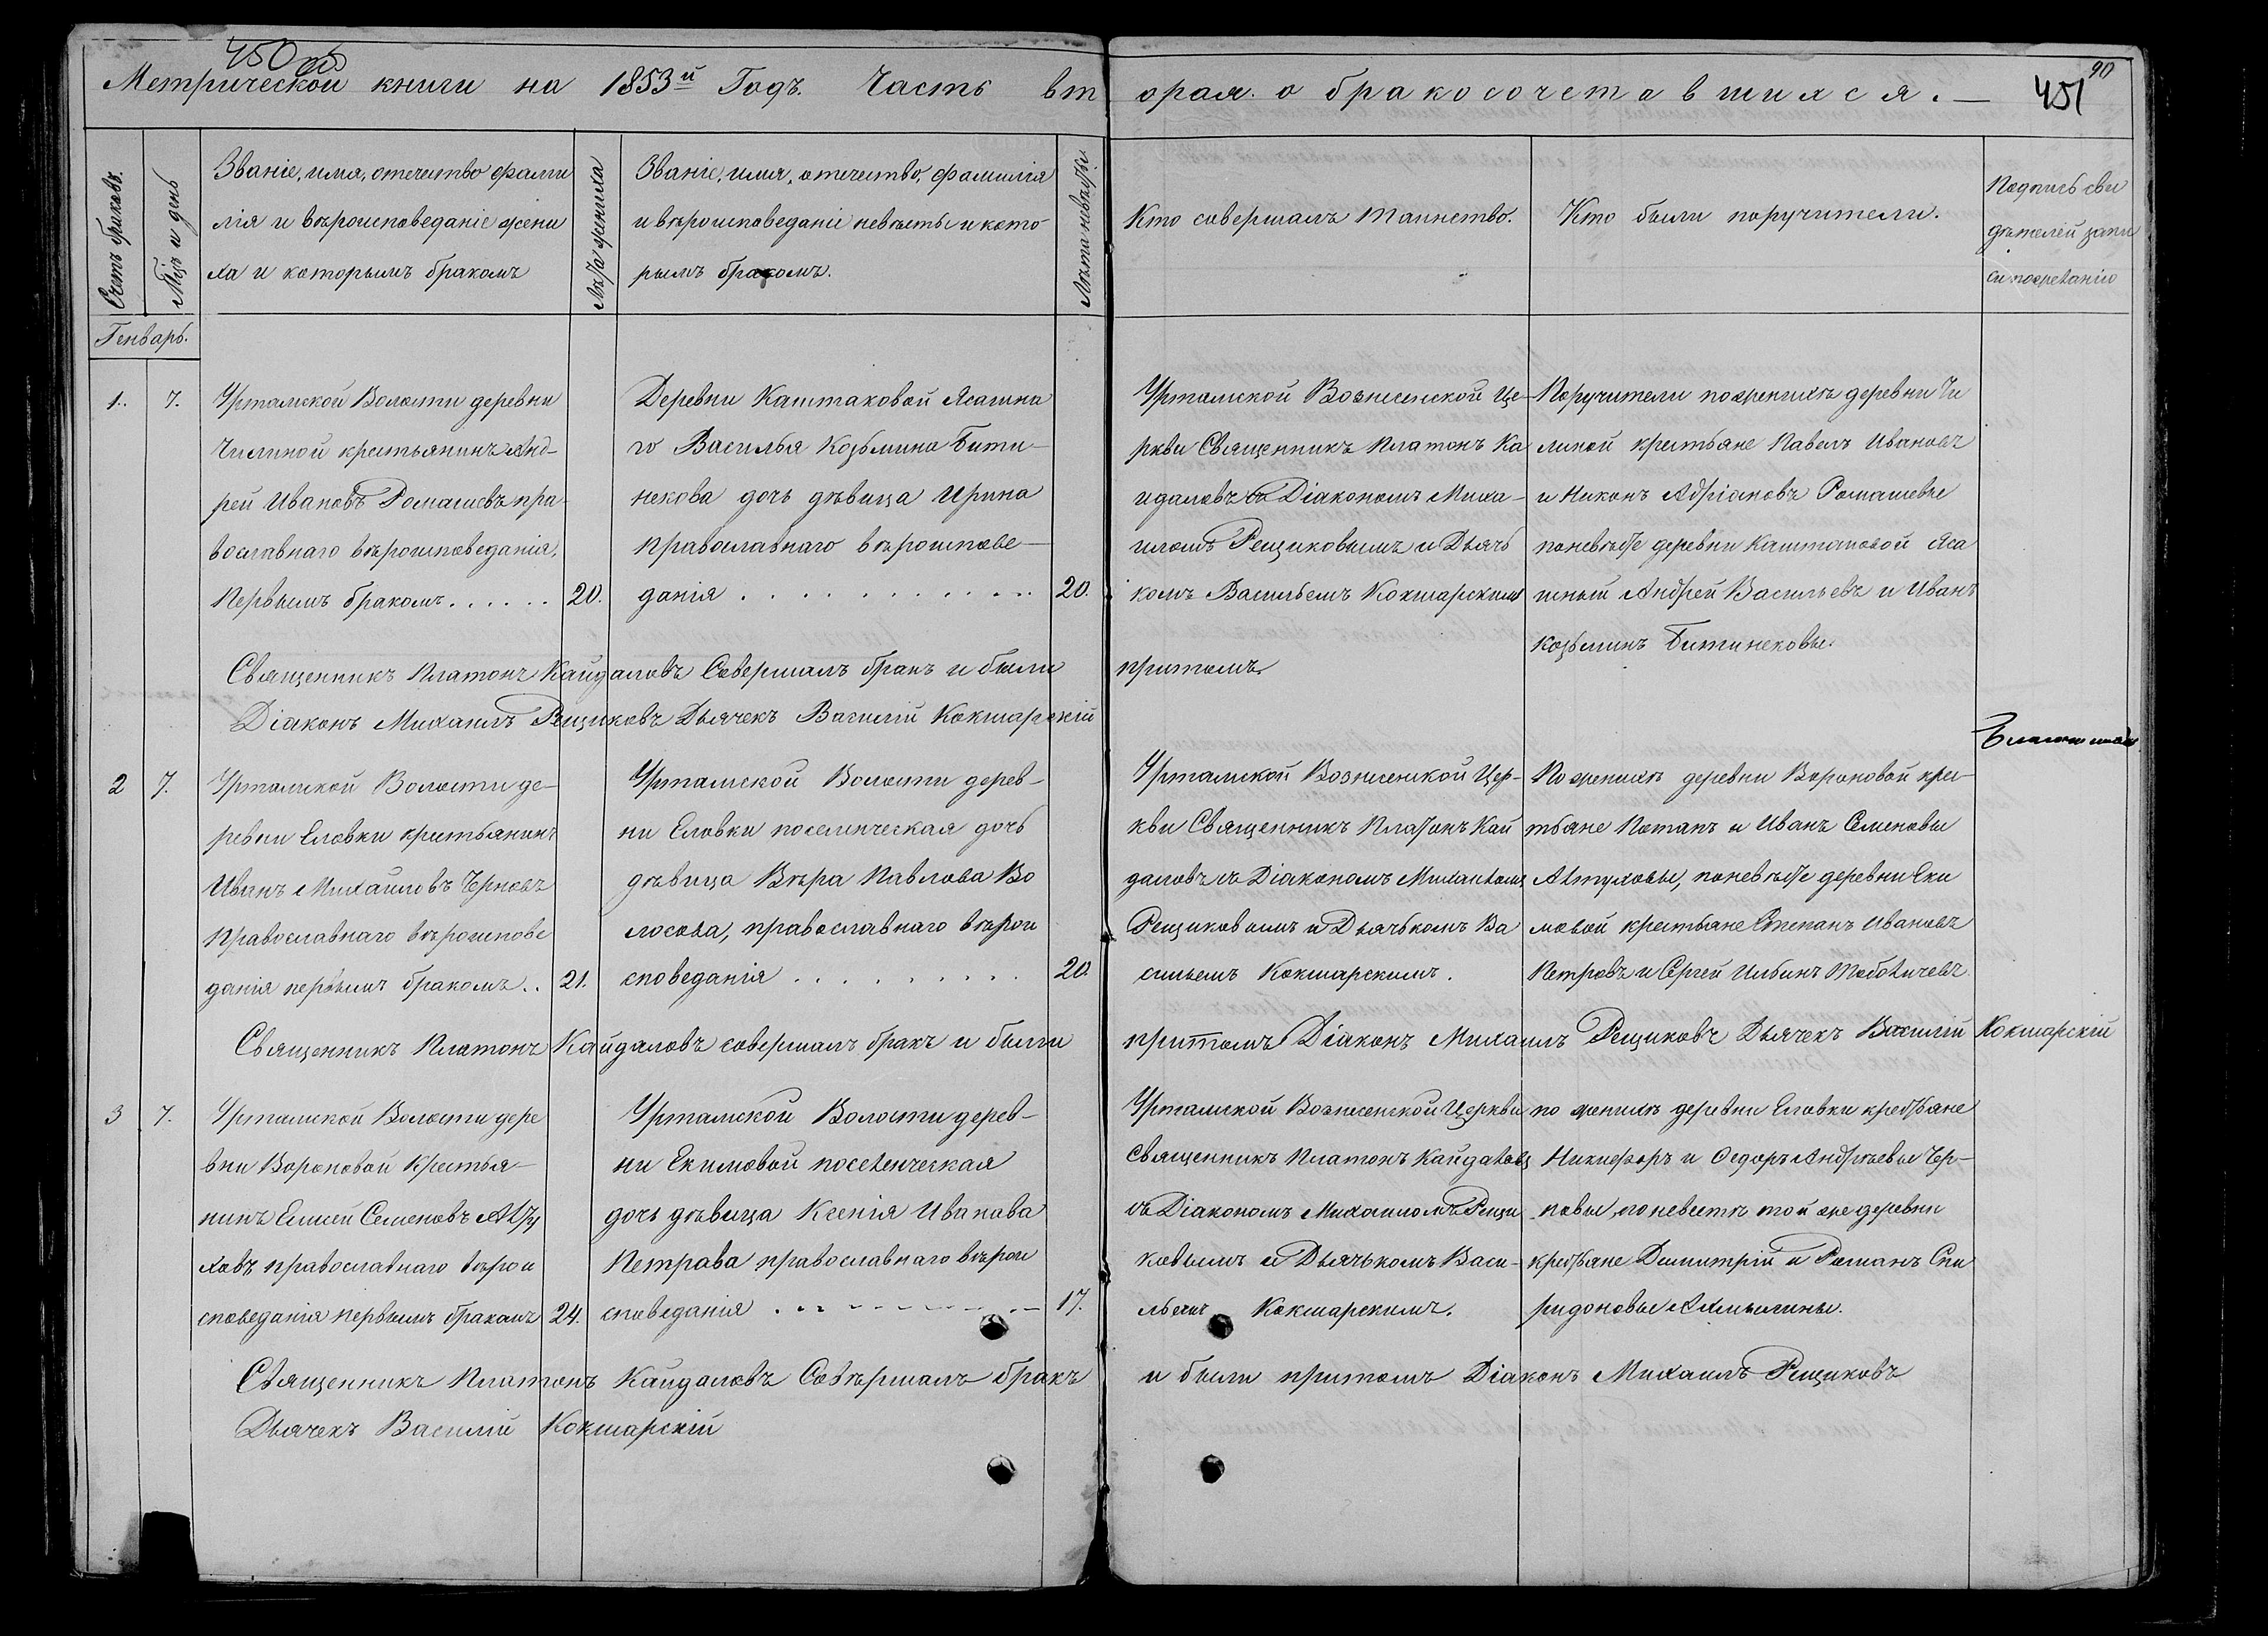 450 об
Метрической книги на 1853й Годъ. Часть вт орая о бракосочетавшихся. —
451
90
Счетъ браковъ.
Мцъ и день
Званіе, имя, отечество фами
лія и вѣроисповеданіе жени
ха и которымъ бракомъ
Лѣта жениха
Званіе, имя, отечество, фамилія
и вѣроисповеданіе невѣсты и кото-
рымъ бракомъ.
Лѣта невѣсты.
Кто совершалъ таинство.
Кто были поручители.
Подпись сви
дѣтелей запи
си
Генварь.
1. 7.
Уртамской Волости деревни
Чилиной крестьянинъ Анд-
рей Ивановъ Ромашевъ пра-
вославнаго вѣроисповеданія,
Первымъ бракомъ . . . . . . 20.
Деревни Каштаковой Ясашна
го Василья Козьмина Бити-
некова дочь дѣвица Ирина
православнаго вѣроиспове-
данія . . . . . . . . . . . . . 20.
Уртамской Вознесенской Це-
ркви Священникъ Платонъ Ка
идаловъ съ Діакономъ Миха-
иломъ Рещиковымъ и Дьячь
комъ Васильемъ Кокшарскимъ
Поручители по женихѣ деревни Чи
линой крестьяне Павелъ Ивановъ
и Никонъ Адріановъ Ромашевы
по невѣсте деревни Каштаковой Яса
шный Андрей Васильевъ и Иванъ
Козьминъ Битинековы.
Священникъ Платонъ Кайдаловъ Совершалъ бракъ и были притомъ
Діаконъ Михаилъ Рещиковъ Дьячекъ Василій Кокшарскій
2 7.
Уртамской Волости де-
ревни Еловки крестьянинъ
Иванъ Михайловъ Черновъ
православнаго вѣроиспове
данія первымъ бракомъ . . 21.
Уртамской Волости дерев-
ни Еловки поселенческая дочь
дѣвица Вѣра Павлова Во
лосова, православнаго вѣрои
споведанія . . . . . . . . . 20.
Уртамской Вознесенской Цер-
кви Священникъ Платонъ Кай
даловъ съ Діакономъ Михаиломъ
Рещиковымъ и Дьячькомъ Ва
сильемъ Кокшарскимъ.
По женихѣ деревни Вороновой кре-
тьяне Потапъ и Иванъ Семеновы
Алтуховы, по невѣсте деревни Еки
мовой крестьяне Степанъ Ивановъ
Петровъ и Сергей Ильинъ
Священникъ Платонъ Кайдаловъ совершалъ бракъ и были притомъ Діаконъ Михаилъ Рещиковъ Дьячекъ Василій Кокшарскій
3 7.
Уртамской Волости дере
вни Вороновой Крестья-
нинъ Елисей Семеновъ Алту
ховъ православнаго вѣрои
споведанія первымъ бракомъ 24.
Уртамской Волости дерев-
ни Екимовой поселенческая
дочь дѣвица Ксенія Иванова
Петрова православнаго вѣрои
споведанія . . . . . . . . . 17.
Уртамской Вознесенской Церкви
Священникъ Платонъ Кайдаловъ
съ Діакономъ Михаиломъ Рещи
ковымъ и Дьячькомъ Васи-
льемъ Кокшарскимъ.
по женихѣ деревни Еловки крестьяне
Никифоръ и Ѳедоръ Андрѣевы Чер-
новы, по невестѣ той же деревни
крестьяне Димитрій и Романъ Спи
ридоновы
Священникъ Платонъ Кайдаловъ Совершалъ бракъ и были притомъ Діаконъ Михаилъ Рещиковъ
Дьячекъ Василій Кокшарскій